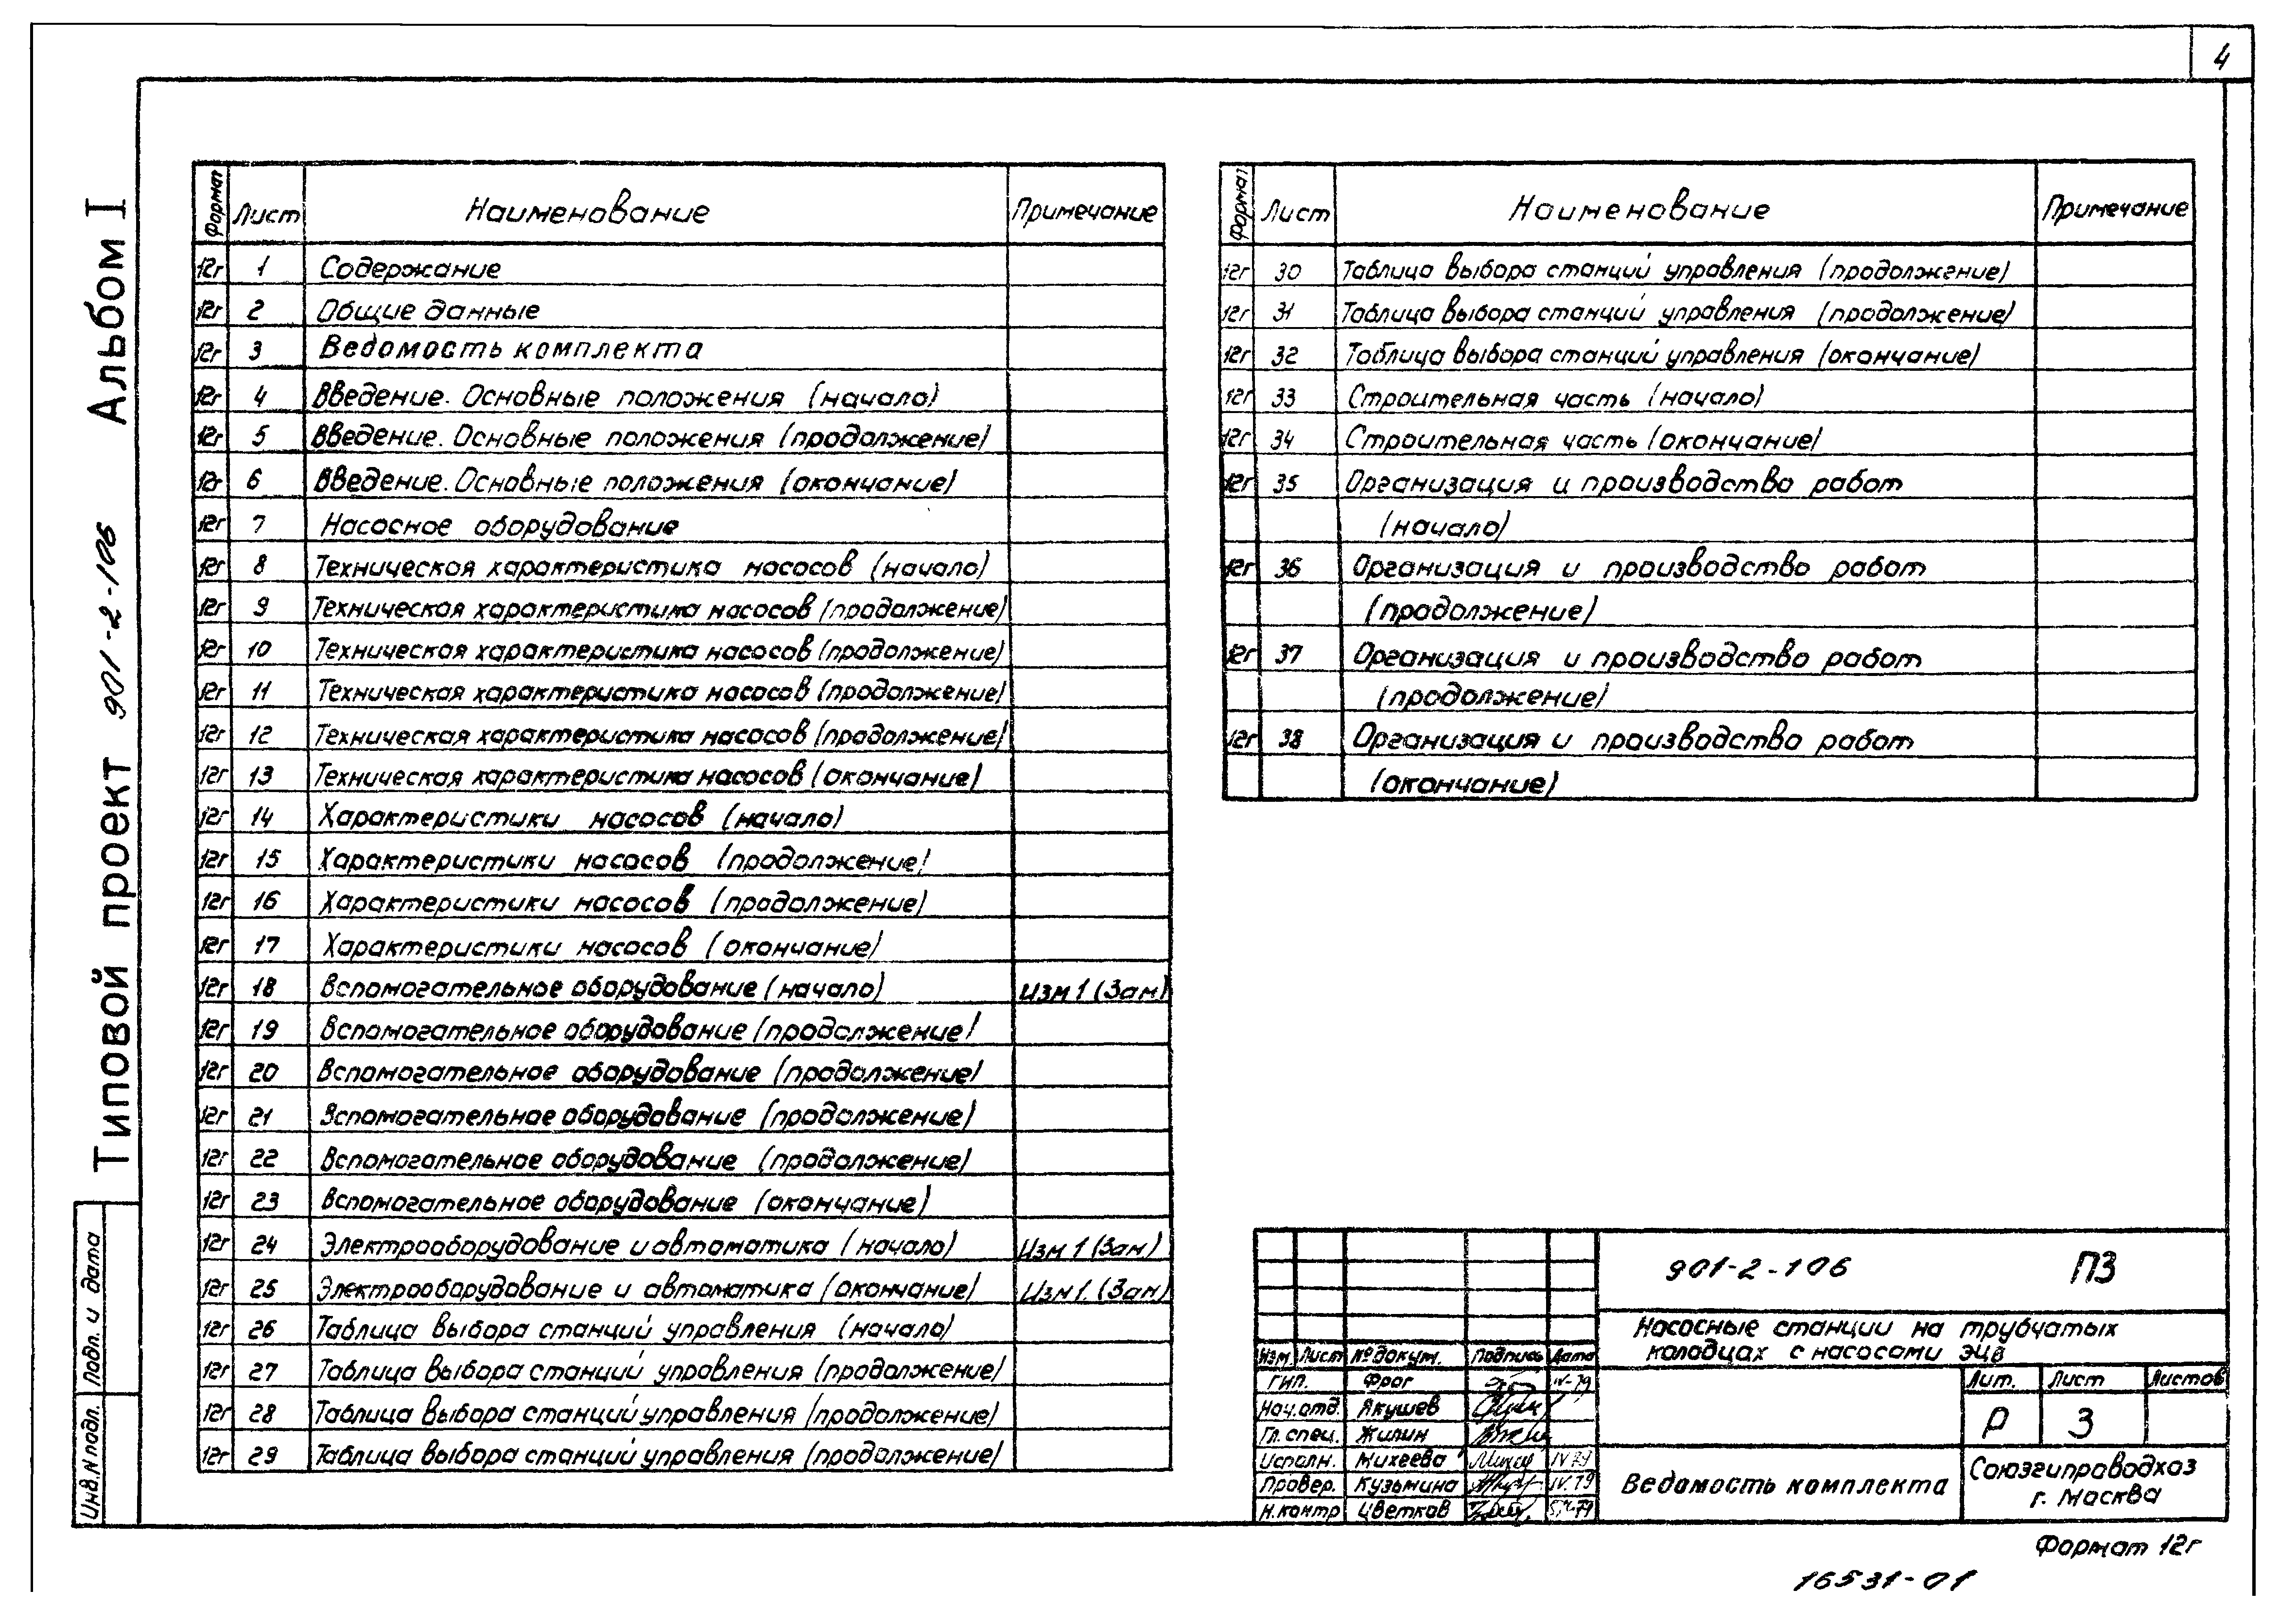 4
Типовой проект 901-2-106 Альбом I
Формат Лист Наименование Примечание
12г 1 Содержание
12г 2 Общие данные
12г 3 Ведомость комплекта
12г 4 Введение. Основные положения (начало)
12г 5 Введение. Основные положения (продолжение)
12г 6 Введение. Основные положения (окончание)
12г 7 Насосное оборудование
12г 8 Техническая характеристика насосов (начало)
12г 9 Техническая характеристика насосов (продолжение)
12г 10 Техническая характеристика насосов (продолжение)
12г 11 Техническая характеристика насосов (продолжение)
12г 12 Техническая характеристика насосов (продолжение)
12г 13 Техническая характеристика насосов (окончание)
12г 14 Характеристики насосов (начало)
12г 15 Характеристики насосов (продолжение)
12г 16 Характеристики насосов (продолжение)
12г 17 Характеристики насосов (окончание)
12г 18 Вспомогательное оборудование (начало) Изм 1 (Зам)
12г 19 Вспомогательное оборудование (продолжение)
12г 20 Вспомогательное оборудование (продолжение)
12г 21 Вспомогательное оборудование (продолжение)
12г 22 Вспомогательное оборудование (продолжение)
12г 23 Вспомогательное оборудование (окончание)
12г 24 Электрооборудование и автоматика (начало) Изм 1 (Зам)
12г 25 Электрооборудование и автоматика (окончание) Изм 1. (Зам)
12г 26 Таблица выбора станций управления (начало)
12г 27 Таблица выбора станций управления (продолжение)
12г 28 Таблица выбора станций управления (продолжение)
12г 29 Таблица выбора станций управления (продолжение)
Формат Лист Наименование Примечание
12г 30 Таблица выбора станций управления (продолжение)
12г 31 Таблица выбора станций управления (продолжение)
12г 32 Таблица выбора станций управления (окончание)
12г 33 Строительная часть (начало)
12г 34 Строительная часть (окончание)
12г 35 Организация и производство работ
(начало)
12г 36 Организация и производство работ
(продолжение)
12г 37 Организация и производство работ
(продолжение)
12г 38 Организация и производство работ
(окончание)
Инв. N подл. Подп. и дата
901-2-106 ПЗ
Насосные станции на трубчатых
колодцах с насосами ЭЦВ
Изм. Лист № докум. Подпись Дата
ГИП. Фрог IV-79
Нач.отд. Якушев
Гл. спец. Жилин
Исполн. Михеева IV 79
Провер. Кузьмина IV.79
Н.контр Цветков
Лит. Лист Листов
Р 3
Ведомость комплекта
Союзгипроводхоз
г. Москва
Формат 12г
16531-01